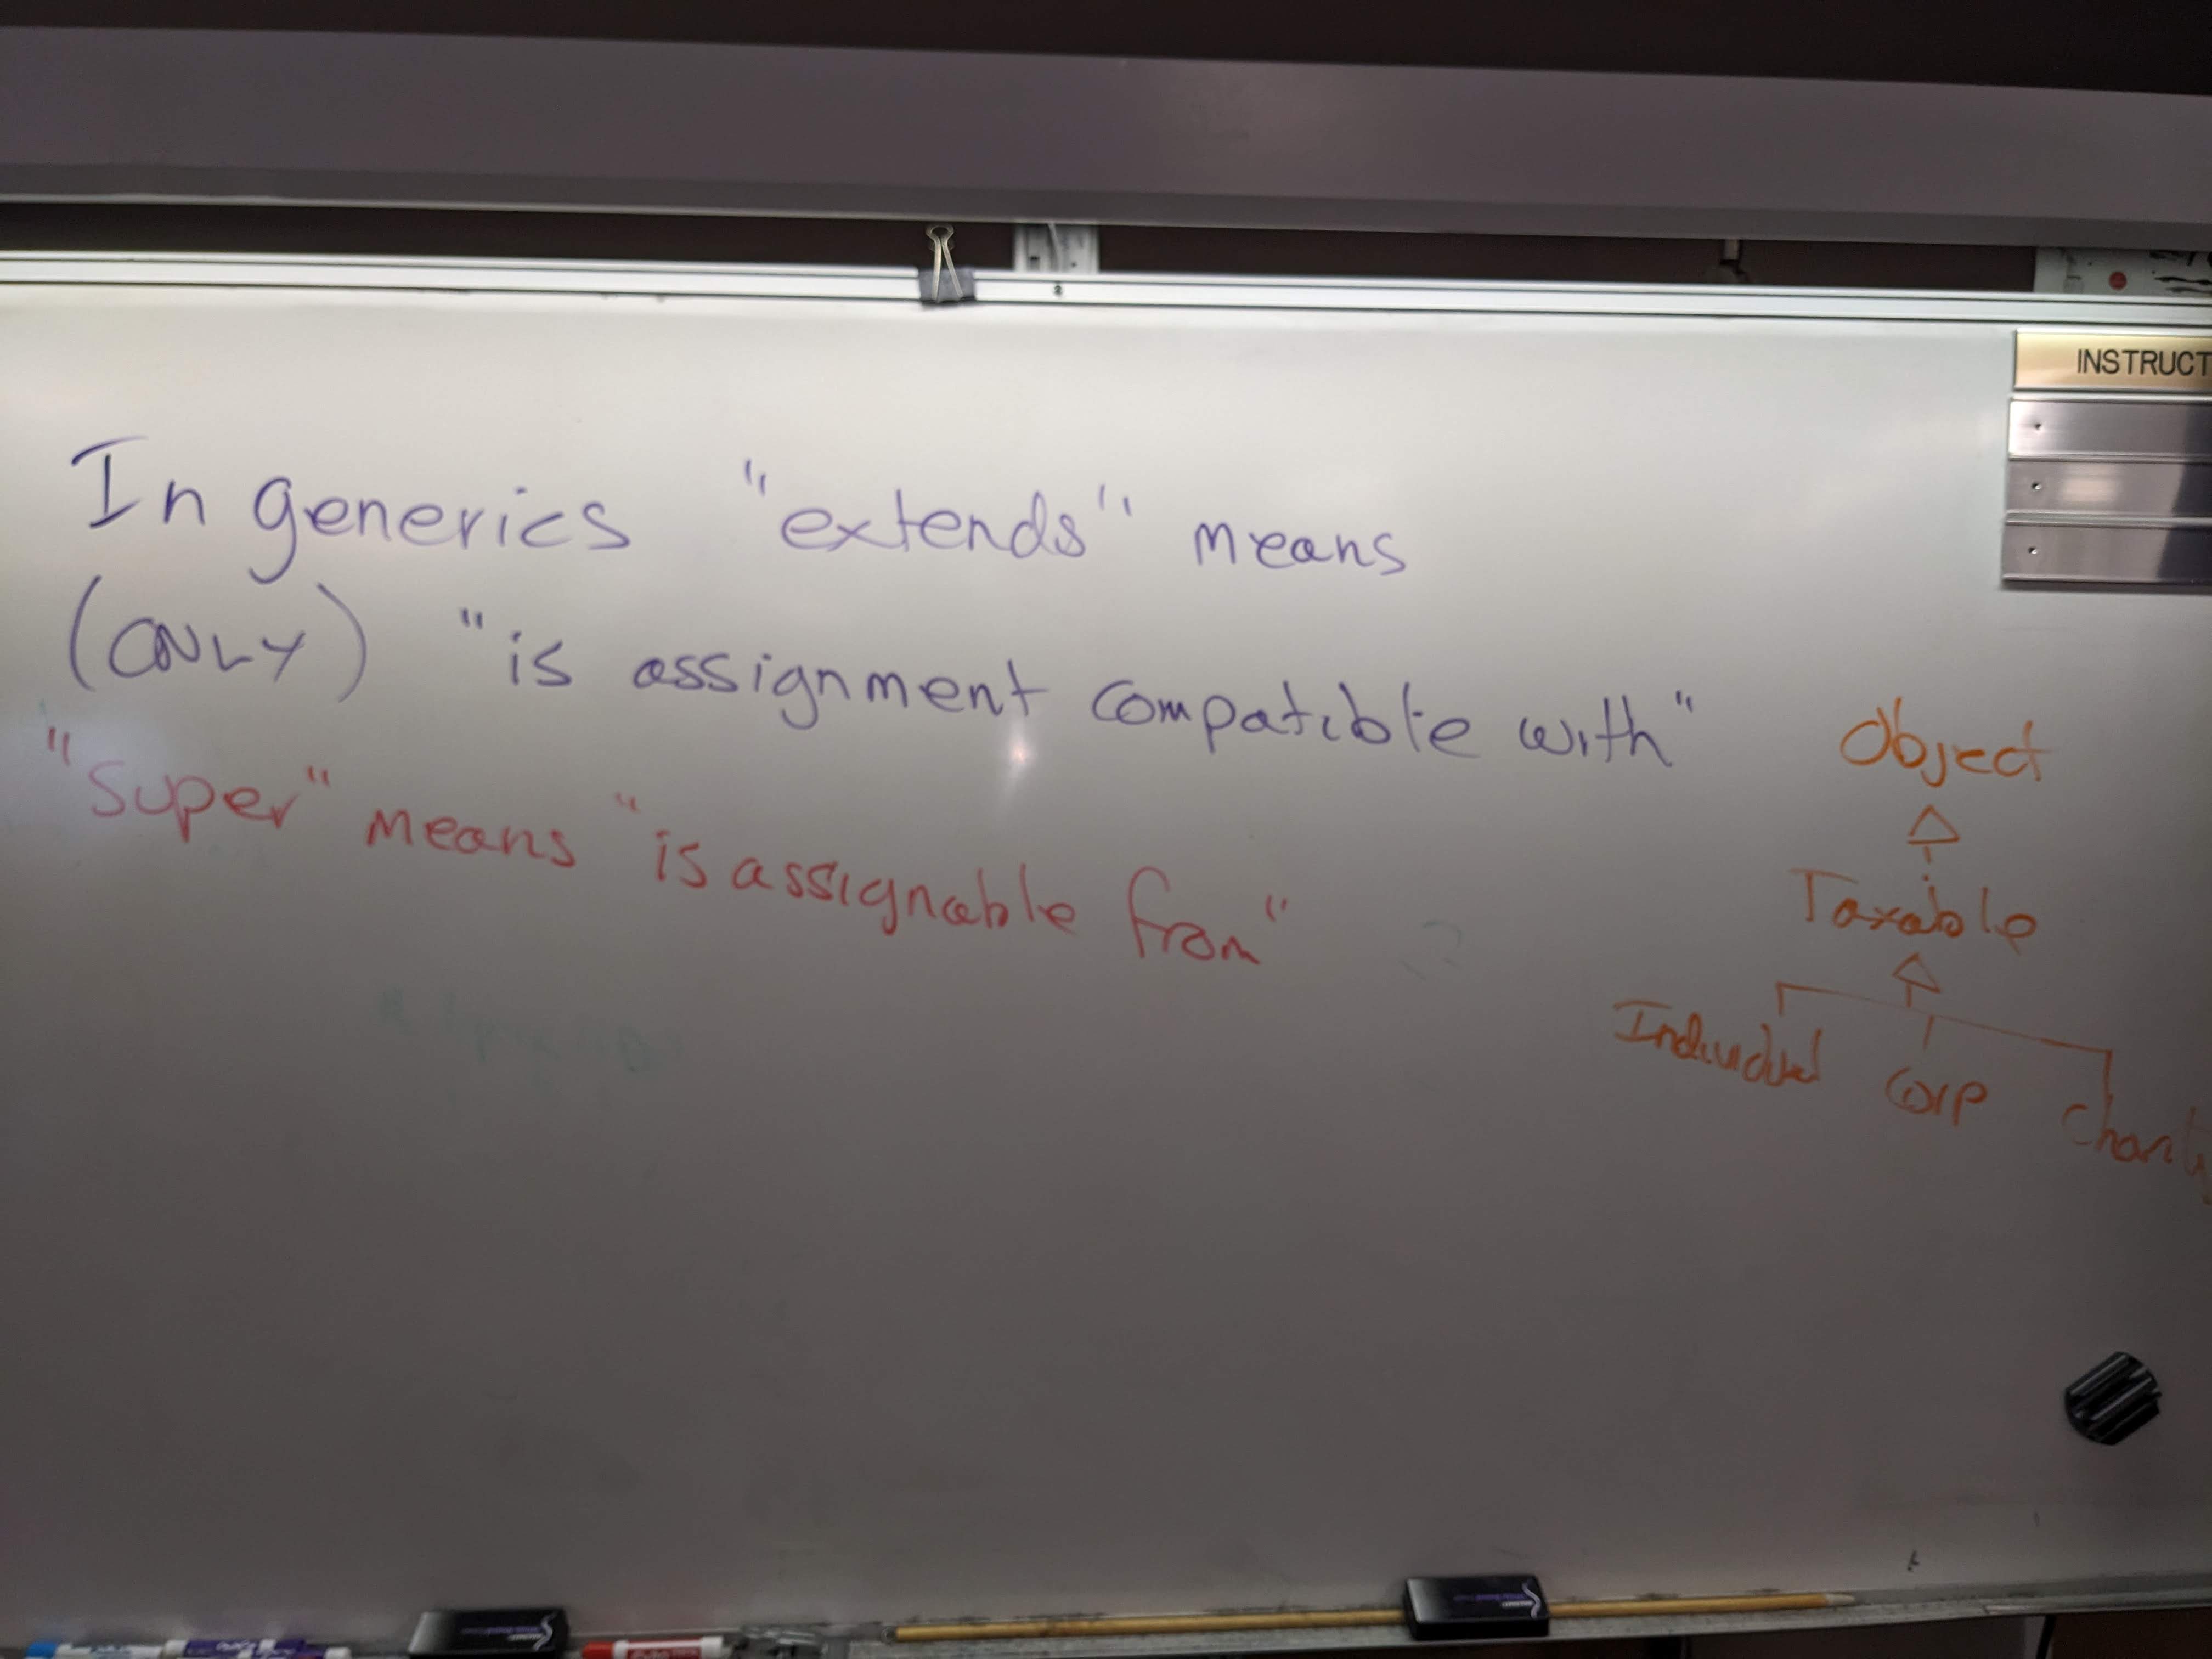 INSTRUCT
In generics "extends" means
(ONLY) "is assignment compatible with"
"super" means "is assignable from"
Object
Taxable
Individual Corp Charity